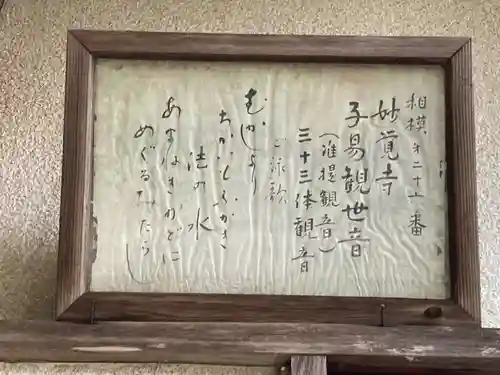 相模第二十一番
妙覚寺
子易観世音
(准提観音)
三十三体観音
ご詠歌
むかしより
ちかいもふかき
法の水
あまねきかどに
めぐるみたらし